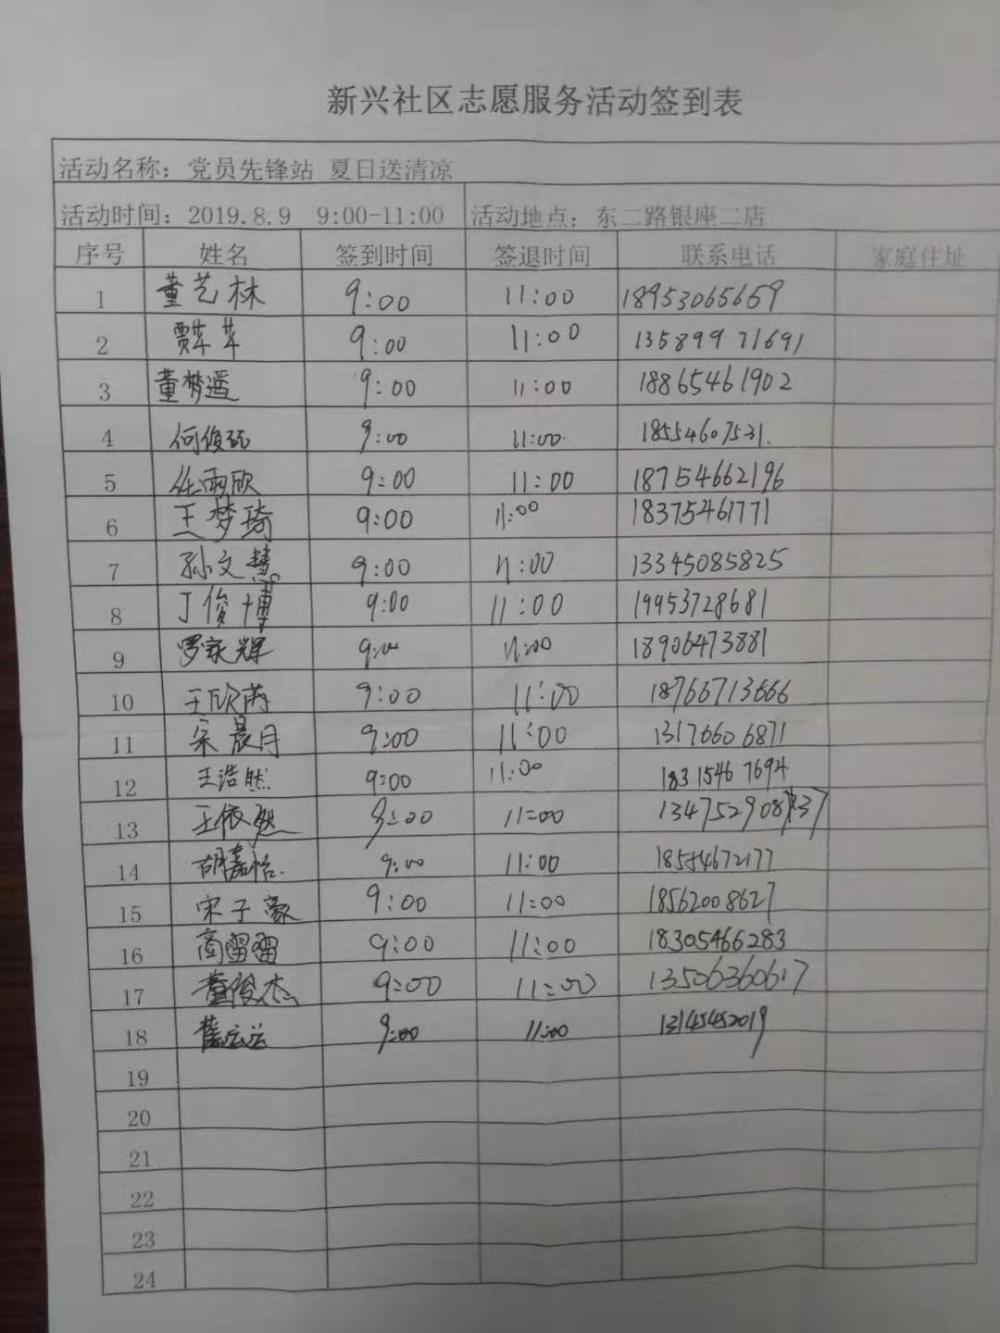 新兴社区志愿服务活动签到表
活动名称：党员先锋站 夏日送清凉
活动时间：2019.8.9 9:00-11:00 活动地点：东二路银座二店
序号 姓名 签到时间 签退时间 联系电话 家庭住址
1 董艺林 9:00 11:00 18953065659
2 贾苹苹 9:00 11:00 13589971691
3 董梦遥 9:00 11:00 18865461902
4 何俊 9:00 11:00 18554607531.
5 任雨欣 9:00 11:00 18754662196
6 王梦琦 9:00 11:00 18375461771
7 孙文慧 9:00 11:00 13345085825
8 丁俊博 9:00 11:00 19953728681
9 罗家辉 9:00 11:00 18906473881
10 王欣芮 9:00 11:00 18766713666
11 宋晨月 9:00 11:00 13176606871
12 王浩然 9:00 11:00 18315467694
13 王依然 9:00 11:00
14 胡嘉怡. 9:00 11:00 18554672177
15 宋子豪 9:00 11:00 18562008627
16 高雷雷 9:00 11:00 18305466283
17 董俊杰 9:00 11:00 13506360617
18 9:00 11:00 13145452019
19
20
21
22
23
24